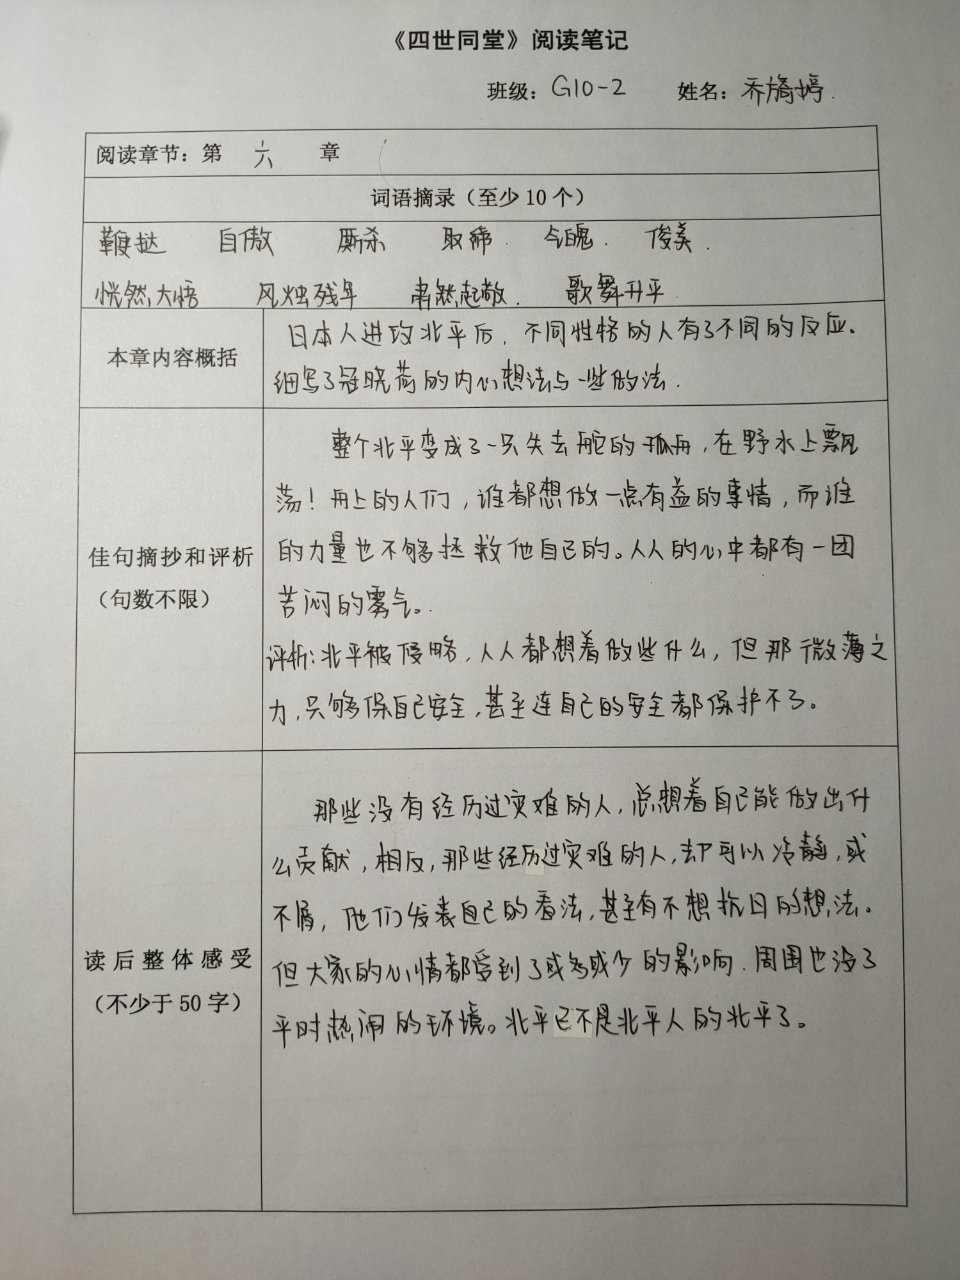 《四世同堂》阅读笔记
班级：G10-2 姓名：乔旖婷.
阅读章节：第 六 章
词语摘录（至少10个）
鞭挞 自傲 厮杀 取缔. 气魄. 俊美.
恍然大悟 风烛残年 肃然起敬. 歌舞升平
本章内容概括
日本人进攻北平后，不同性格的人有了不同的反应.
细写了冠晓荷的内心想法与一些做法.
佳句摘抄和评析
（句数不限）
整个北平变成了一只失去舵的孤舟，在野水上飘
荡！舟上的人们，谁都想做一点有益的事情，而谁
的力量也不够拯救他自己的。人人的心中都有一团
苦闷的雾气。.
评析：北平被侵略，人人都想着做些什么，但那微薄之
力，只够保自己安全，甚至连自己的安全都保护不了。
读后整体感受
（不少于50字）
那些没有经历过灾难的人，总想着自己能做出什
么贡献，相反，那些经历过灾难的人，却可以冷静，或
不屑，他们发表自己的看法，甚至有不想抗日的想法。
但大家的心情都受到了或多或少的影响. 周围也没了
平时热闹的环境。北平已不是北平人的北平了。